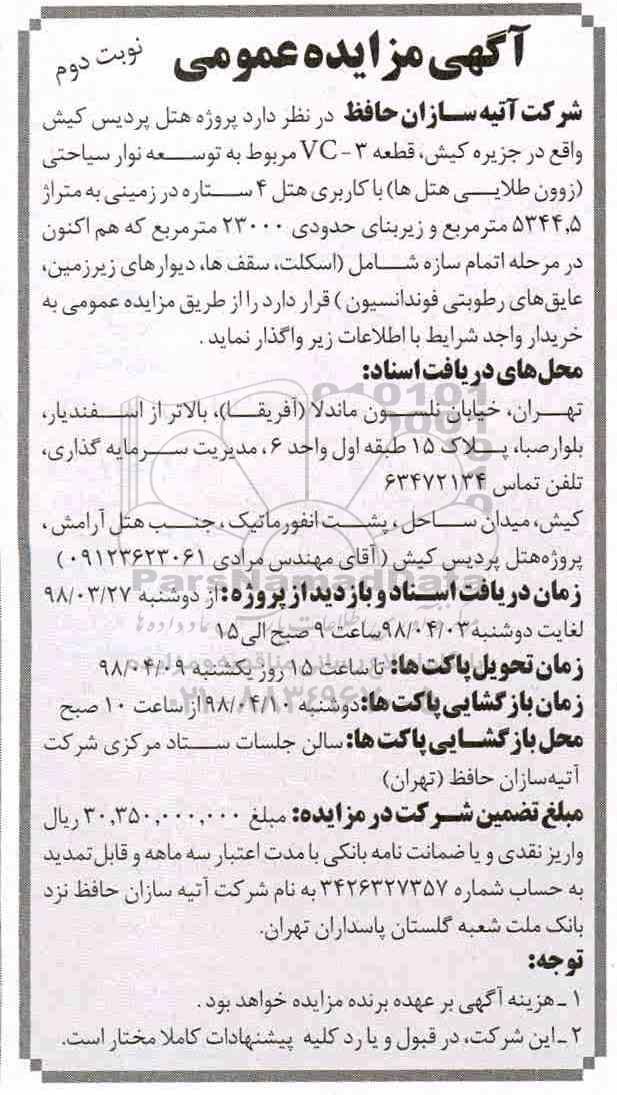 آگهی مزایده عمومی
نوبت دوم
شرکت آتیه سازان حافظ در نظر دارد پروژه هتل پردیس کیش
واقع در جزیره کیش، قطعه ۳ - VC مربوط به توسعه نوار سیاحتی
(زوون طلایی هتل ها) با کاربری هتل ۴ ستاره در زمینی به متراژ
۵۳۴۴,۵ مترمربع و زیربنای حدودی ۲۳۰۰۰ مترمربع که هم اکنون
در مرحله اتمام سازه شامل (اسکلت، سقف ها، دیوارهای زیرزمین،
عایق‌های رطوبتی فوندانسیون ) قرار دارد را از طریق مزایده عمومی به
خریدار واجد شرایط با اطلاعات زیر واگذار نماید .
محل‌های دریافت اسناد:
تهران، خیابان نلسون ماندلا (آفریقا)، بالاتر از اسفندیار،
بلوارصبا، پلاک ۱۵ طبقه اول واحد ۶ ، مدیریت سرمایه گذاری،
تلفن تماس ۶۳۴۷۲۱۳۴
کیش، میدان ساحل ، پشت انفورماتیک ، جنب هتل آرامش ،
پروژه‌هتل پردیس کیش ( آقای مهندس مرادی ۰۹۱۲۳۶۲۳۰۶۱)
ParsNamadData
زمان دریافت اسناد و بازدید از پروژه : از دوشنبه ۹۸/۰۳/۲۷
لغایت دوشنبه ۹۸/۰۴/۰۳ساعت ۹ صبح الی ۱۵
زمان تحویل پاکت ها: تا ساعت ۱۵ روز یکشنبه ۹۸/۰۴/۰۹
زمان بازگشایی پاکت ها: دوشنبه ۹۸/۰۴/۱۰ از ساعت ۱۰ صبح
محل بازگشایی پاکت ها: سالن جلسات ستاد مرکزی شرکت
آتیه‌سازان حافظ (تهران)
مبلغ تضمین شرکت در مزایده: مبلغ ۳۰,۳۵۰,۰۰۰,۰۰۰ ریال
واریز نقدی و یا ضمانت نامه بانکی با مدت اعتبار سه ماهه و قابل تمدید
به حساب شماره ۳۴۲۶۳۲۷۳۵۷ به نام شرکت آتیه سازان حافظ نزد
بانک ملت شعبه گلستان پاسداران تهران.
توجه:
۱ ـ هزینه آگهی بر عهده برنده مزایده خواهد بود .
۲ ـ این شرکت، در قبول و یا رد کلیه پیشنهادات کاملا مختار است.